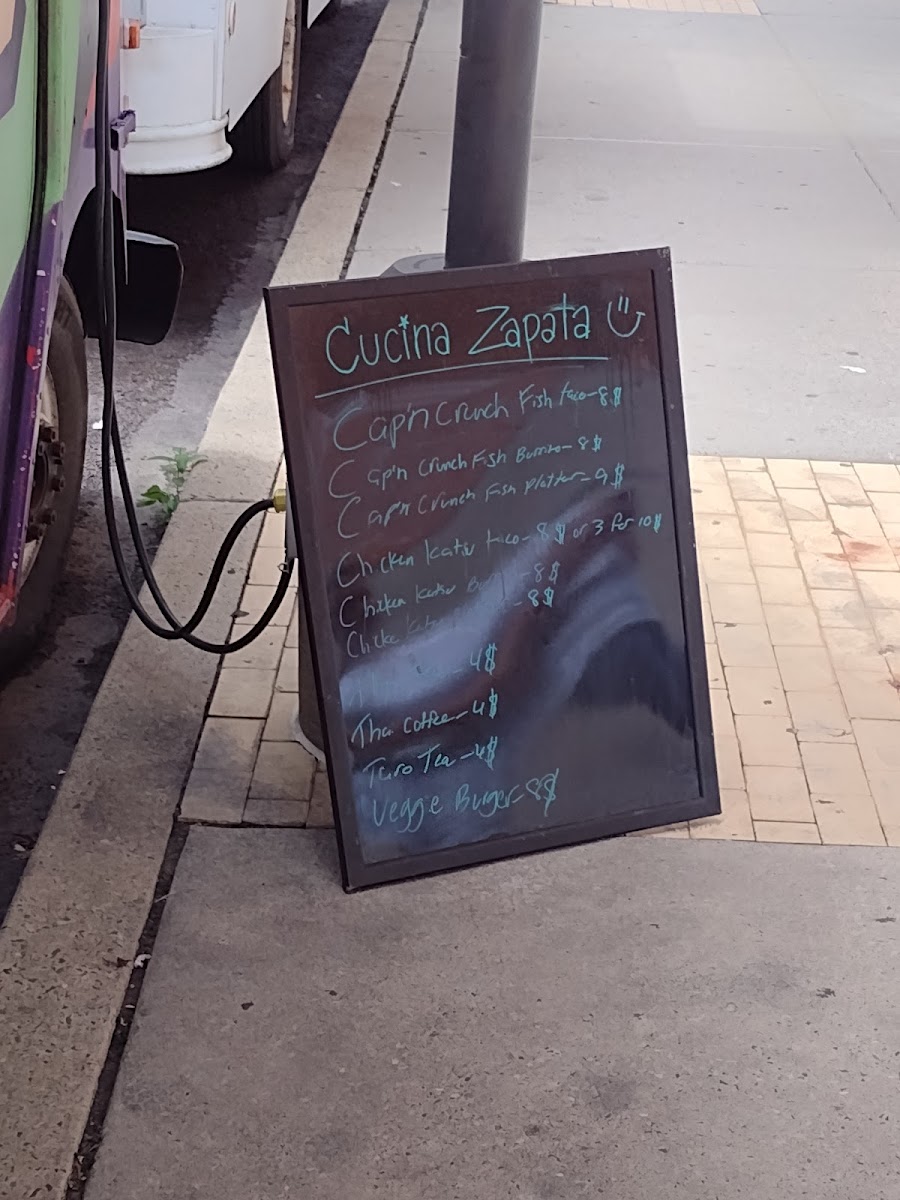 Cucina Zapata
Cap'n Crunch Fish taco-8$
Cap'n Crunch Fish Burrito-8$
Cap'n Crunch Fish Platter-9$
Chicken Katsu taco-8$ or 3 for 10$
Chicken Katsu -8$
Chicke -8$
-4$
Thai coffee-4$
Taro Tea-4$
Veggie Burger-8$